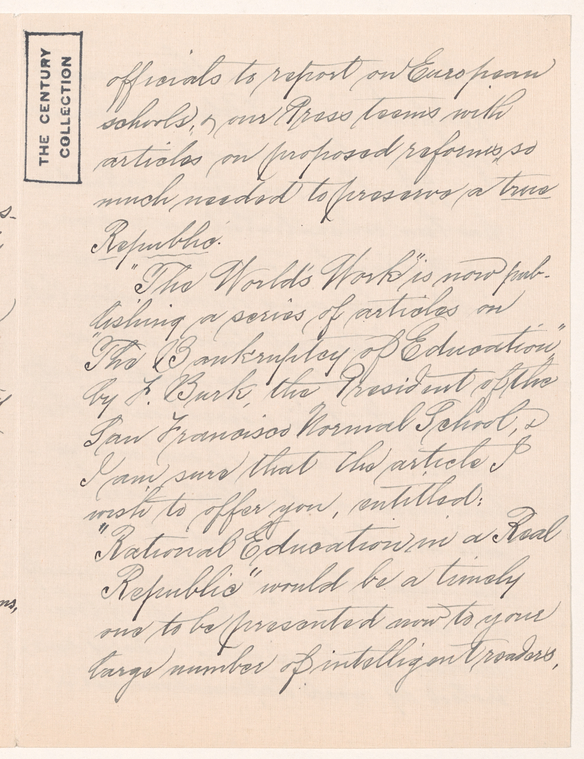 THE CENTURY
COLLECTION
officials to report on European
schools, & our Press teems with
articles on proposed reforms, so
much needed to preserve a true
Republic.
"The World's Work" is now pub-
lishing a series of articles on
"The Bankruptcy of Education"
by F. Burk, the President of the
San Francisco Normal School, &
I am sure that the article I
wish to offer you, entitled:
"Rational Education in a Real
Republic" would be a timely
one to be presented now to your
large number of intelligent readers,
s-
y
ns,